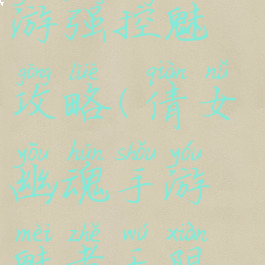 游强控魅
gōng lüè qiàn nǚ
攻略(倩女
yōu hún shǒu yóu
幽魂手游
mèi zhě wú xiàn